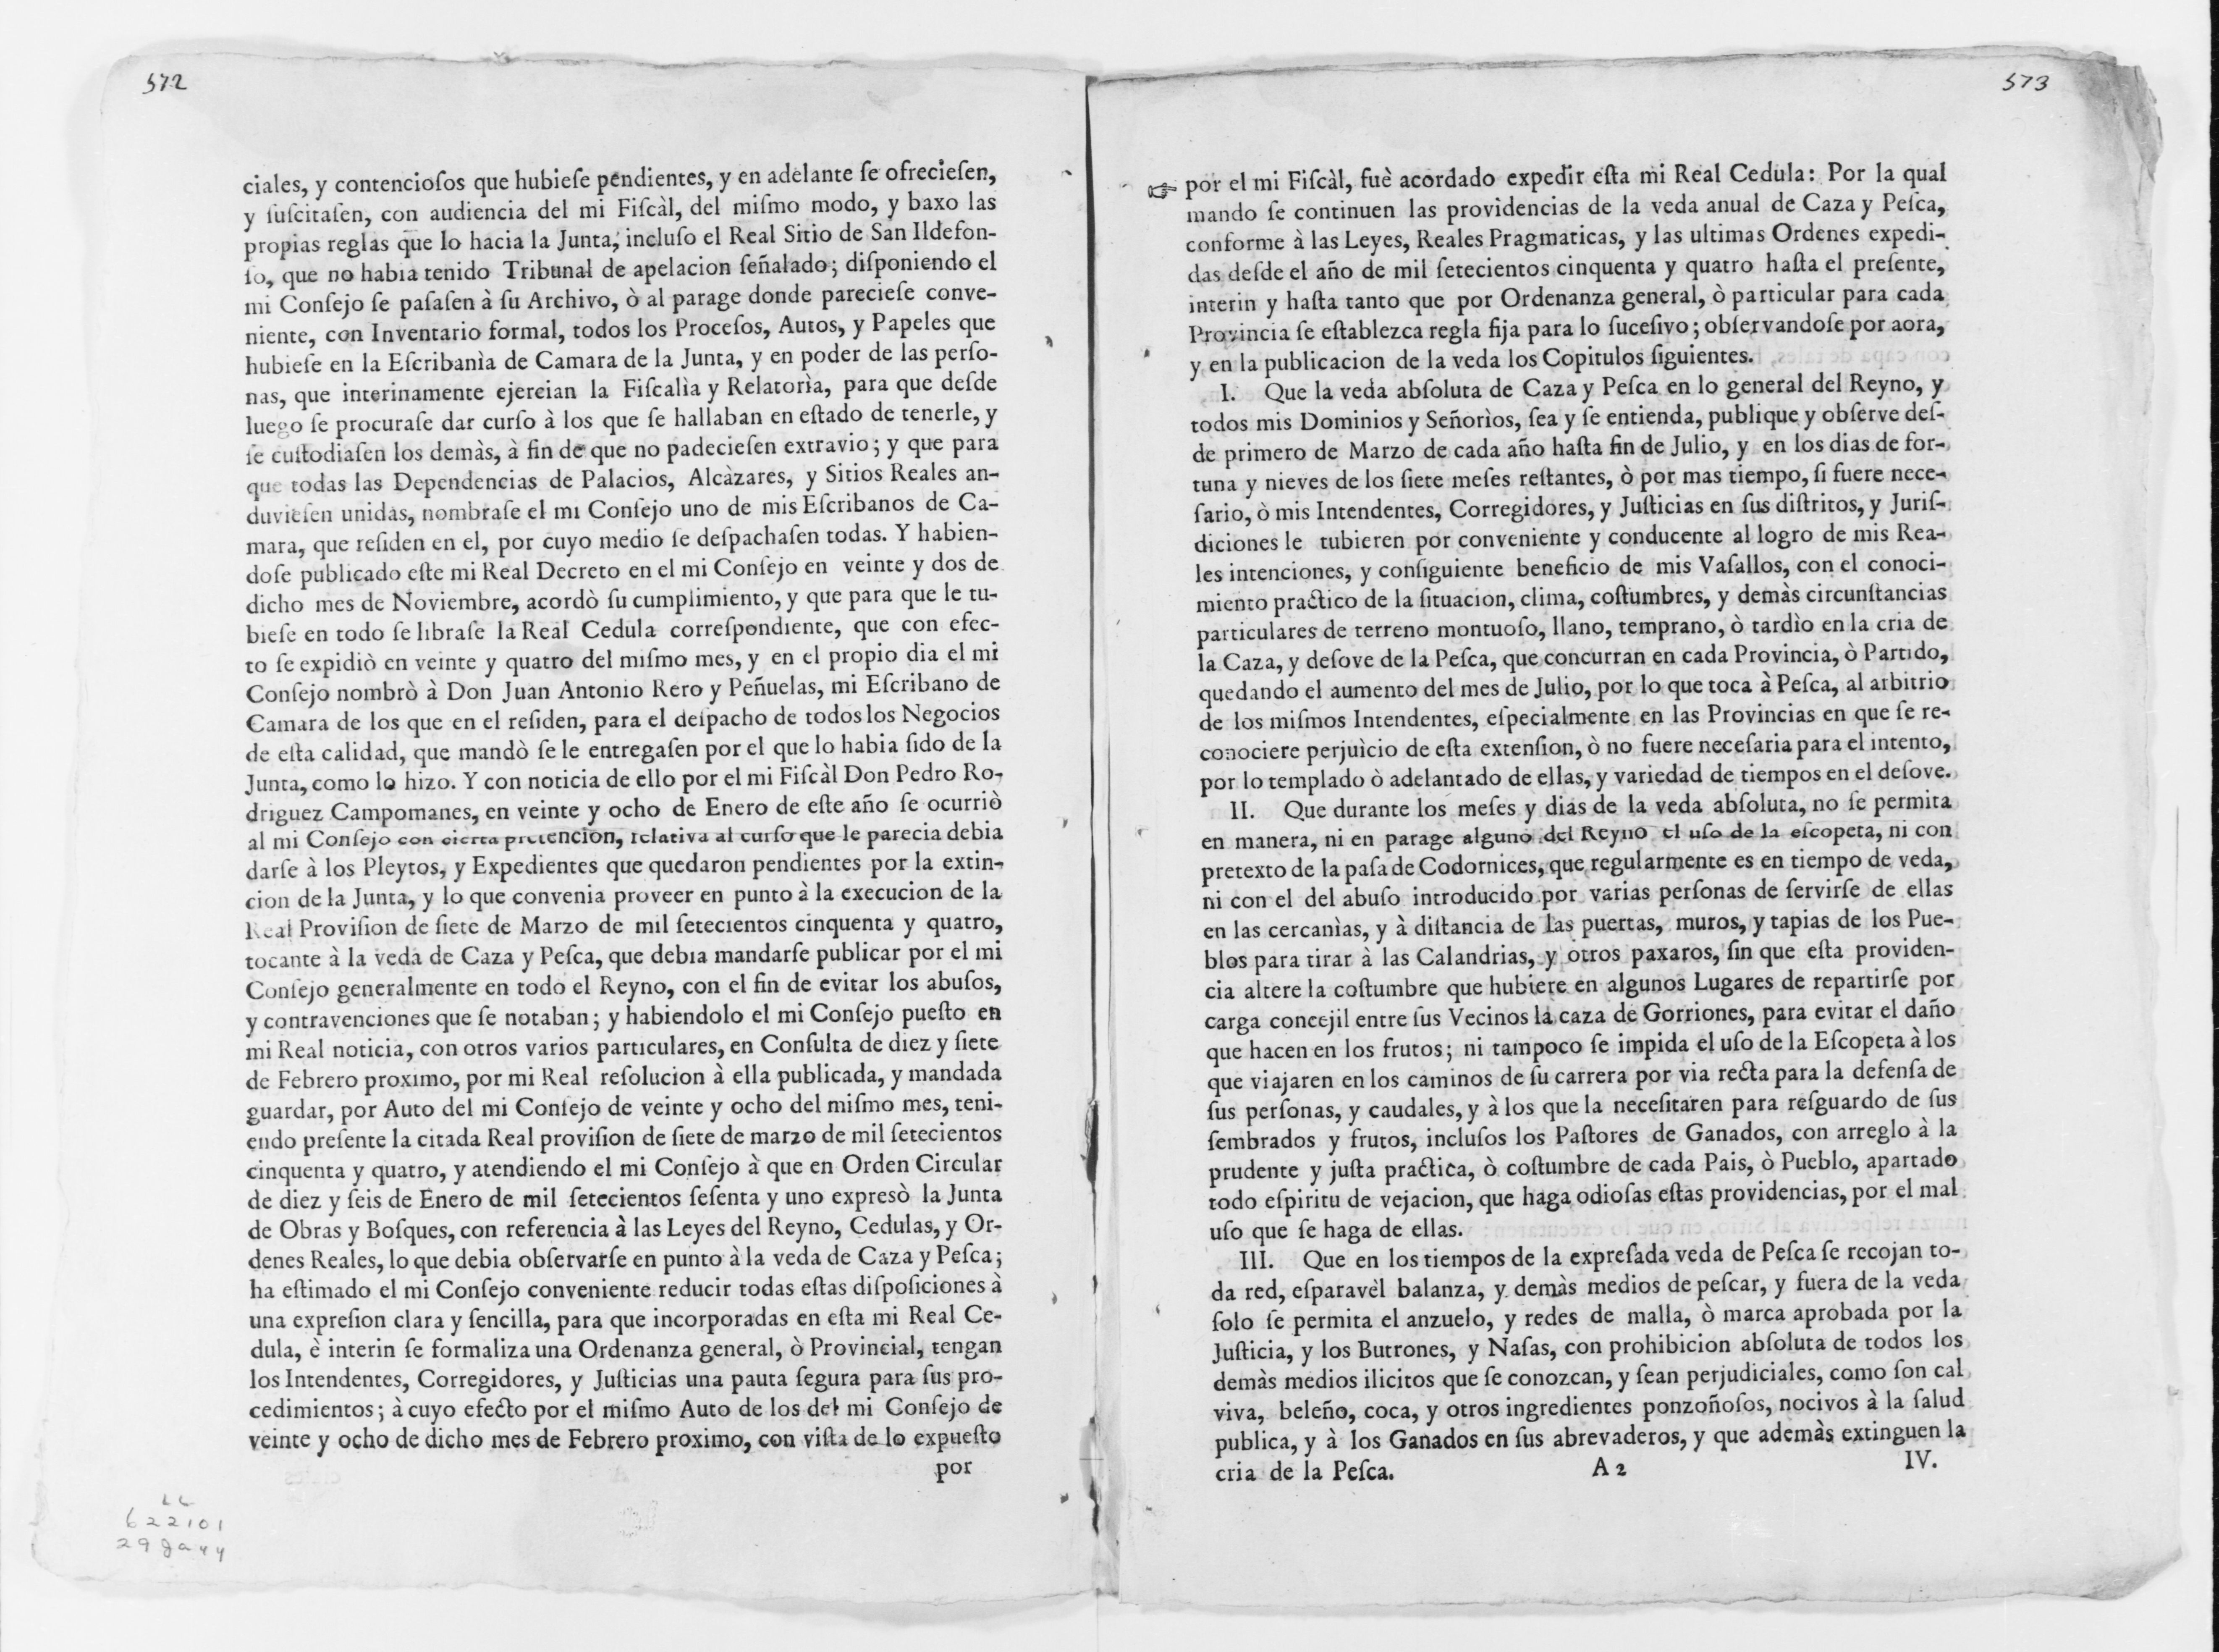 572
ciales, y contencioſos que hubieſe pendientes, y en adelante ſe ofrecieſen,
y ſuſcitaſen, con audiencia del mi Fiſcàl, del miſmo modo, y baxo las
propias reglas que lo hacia la Junta, incluſo el Real Sitio de San Ildefon-
ſo, que no habia tenido Tribunal de apelacion ſeñalado; diſponiendo el
mi Conſejo ſe paſaſen à ſu Archivo, ò al parage donde parecieſe conve-
niente, con Inventario formal, todos los Proceſos, Autos, y Papeles que
hubieſe en la Eſcribanìa de Camara de la Junta, y en poder de las perſo-
nas, que interinamente ejercian la Fiſcalìa y Relatorìa, para que deſde
luego ſe procuraſe dar curſo à los que ſe hallaban en eſtado de tenerle, y
ſe cuſtodiaſen los demàs, à fin de que no padecieſen extravio; y que para
que todas las Dependencias de Palacios, Alcàzares, y Sitios Reales an-
duvieſen unidas, nombraſe el mi Conſejo uno de mis Eſcribanos de Ca-
mara, que reſiden en el, por cuyo medio ſe deſpachaſen todas. Y habien-
doſe publicado eſte mi Real Decreto en el mi Conſejo en veinte y dos de
dicho mes de Noviembre, acordò ſu cumplimiento, y que para que le tu-
bieſe en todo ſe libraſe la Real Cedula correſpondiente, que con efec-
to ſe expidiò en veinte y quatro del miſmo mes, y en el propio dia el mi
Conſejo nombrò à Don Juan Antonio Rero y Peñuelas, mi Eſcribano de
Camara de los que en el reſiden, para el deſpacho de todos los Negocios
de eſta calidad, que mandò ſe le entregaſen por el que lo habia ſido de la
Junta, como lo hizo. Y con noticia de ello por el mi Fiſcàl Don Pedro Ro-
driguez Campomanes, en veinte y ocho de Enero de eſte año ſe ocurriò
al mi Conſejo con cierta pretencion, relativa al curſo que le parecia debia
darſe à los Pleytos, y Expedientes que quedaron pendientes por la extin-
cion de la Junta, y lo que convenia proveer en punto à la execucion de la
Real Proviſion de ſiete de Marzo de mil ſetecientos cinquenta y quatro,
tocante à la veda de Caza y Peſca, que debia mandarſe publicar por el mi
Conſejo generalmente en todo el Reyno, con el fin de evitar los abuſos,
y contravenciones que ſe notaban; y habiendolo el mi Conſejo pueſto en
mi Real noticia, con otros varios particulares, en Conſulta de diez y ſiete
de Febrero proximo, por mi Real reſolucion à ella publicada, y mandada
guardar, por Auto del mi Conſejo de veinte y ocho del miſmo mes, teni-
endo preſente la citada Real proviſion de ſiete de marzo de mil ſetecientos
cinquenta y quatro, y atendiendo el mi Conſejo à que en Orden Circular
de diez y ſeis de Enero de mil ſetecientos ſeſenta y uno expresò la Junta
de Obras y Boſques, con referencia à las Leyes del Reyno, Cedulas, y Or-
denes Reales, lo que debia obſervarſe en punto à la veda de Caza y Peſca;
ha eſtimado el mi Conſejo conveniente reducir todas eſtas diſpoſiciones à
una expreſion clara y ſencilla, para que incorporadas en eſta mi Real Ce-
dula, è interin ſe formaliza una Ordenanza general, ò Provincial, tengan
los Intendentes, Corregidores, y Juſticias una pauta ſegura para ſus pro-
cedimientos; à cuyo efecto por el miſmo Auto de los del mi Conſejo de
veinte y ocho de dicho mes de Febrero proximo, con viſta de lo expueſto
por
LL
622101
29 Ja 44
573
☞ por el mi Fiſcàl, fuè acordado expedir eſta mi Real Cedula: Por la qual
mando ſe continuen las providencias de la veda anual de Caza y Peſca,
conforme à las Leyes, Reales Pragmaticas, y las ultimas Ordenes expedi-
das deſde el año de mil ſetecientos cinquenta y quatro haſta el preſente,
interin y haſta tanto que por Ordenanza general, ò particular para cada
Provincia ſe eſtablezca regla fija para lo ſuceſivo; obſervandoſe por aora,
y en la publicacion de la veda los Copitulos ſiguientes.
I. Que la veda abſoluta de Caza y Peſca en lo general del Reyno, y
todos mis Dominios y Señorìos, ſea y ſe entienda, publique y obſerve deſ-
de primero de Marzo de cada año haſta fin de Julio, y en los dias de for-
tuna y nieves de los ſiete meſes reſtantes, ò por mas tiempo, ſi fuere nece-
ſario, ò mis Intendentes, Corregidores, y Juſticias en ſus diſtritos, y Juriſ-
diciones le tubieren por conveniente y conducente al logro de mis Rea-
les intenciones, y conſiguiente beneficio de mis Vaſallos, con el conoci-
miento practico de la ſituacion, clima, coſtumbres, y demàs circunſtancias
particulares de terreno montuoſo, llano, temprano, ò tardìo en la cria de
la Caza, y deſove de la Peſca, que concurran en cada Provincia, ò Partido,
quedando el aumento del mes de Julio, por lo que toca à Peſca, al arbitrio
de los miſmos Intendentes, eſpecialmente en las Provincias en que ſe re-
conociere perjuicio de eſta extenſion, ò no fuere neceſaria para el intento,
por lo templado ò adelantado de ellas, y variedad de tiempos en el deſove.
II. Que durante los meſes y dias de la veda abſoluta, no ſe permita
en manera, ni en parage alguno del Reyno el uſo de la eſcopeta, ni con
pretexto de la paſa de Codornices, que regularmente es en tiempo de veda,
ni con el del abuſo introducido por varias perſonas de ſervirſe de ellas
en las cercanìas, y à diſtancia de las puertas, muros, y tapias de los Pue-
blos para tirar à las Calandrias, y otros paxaros, ſin que eſta providen-
cia altere la coſtumbre que hubiere en algunos Lugares de repartirſe por
carga concejil entre ſus Vecinos la caza de Gorriones, para evitar el daño
que hacen en los frutos; ni tampoco ſe impida el uſo de la Eſcopeta à los
que viajaren en los caminos de ſu carrera por via recta para la defenſa de
ſus perſonas, y caudales, y à los que la neceſitaren para reſguardo de ſus
ſembrados y frutos, incluſos los Paſtores de Ganados, con arreglo à la
prudente y juſta practica, ò coſtumbre de cada Pais, ò Pueblo, apartado
todo eſpiritu de vejacion, que haga odioſas eſtas providencias, por el mal
uſo que ſe haga de ellas.
III. Que en los tiempos de la expreſada veda de Peſca ſe recojan to-
da red, eſparavèl balanza, y demàs medios de peſcar, y fuera de la veda
ſolo ſe permita el anzuelo, y redes de malla, ò marca aprobada por la
Juſticia, y los Butrones, y Naſas, con prohibicion abſoluta de todos los
demàs medios ilicitos que ſe conozcan, y ſean perjudiciales, como ſon cal
viva, beleño, coca, y otros ingredientes ponzoñoſos, nocivos à la ſalud
publica, y à los Ganados en ſus abrevaderos, y que ademàs extinguen la
cria de la Peſca. A 2 IV.